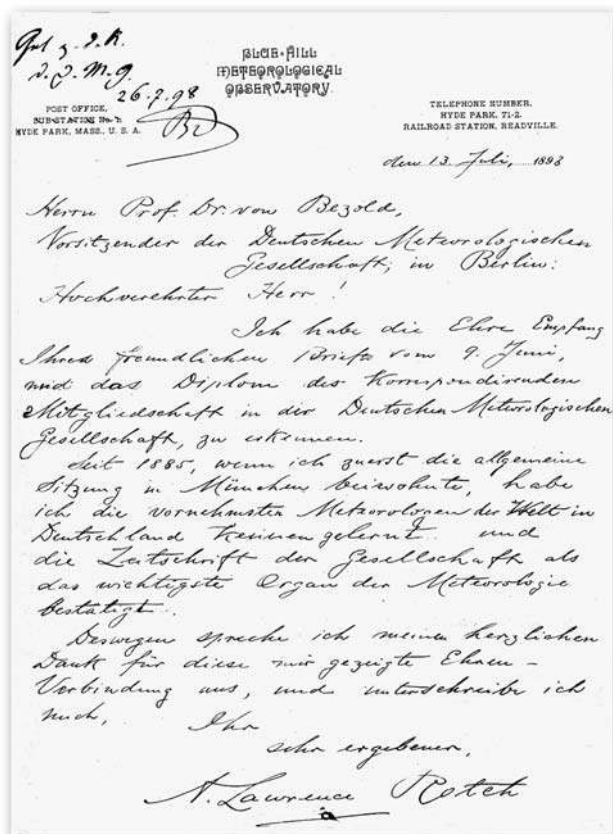 Ges z. d. K.
d. D. M. G.
26.7.98
Bz
BLUE HILL
METEOROLOGICAL
OBSERVATORY.
POST OFFICE,
SUB-STATION No 7:
HYDE PARK, MASS., U. S. A.
TELEPHONE NUMBER,
HYDE PARK, 71-2.
RAILROAD STATION, READVILLE.
den 13. Juli, 1898
Herrn Prof. Dr. von Bezold,
Vorsitzender der Deutschen Meteorologischen
Gesellschaft, in Berlin:
Hochverehrter Herr!
Ich habe die Ehre Empfang
Ihres freundlichen Briefs vom 9. Juni,
und das Diplom des Korrespondirenden
Mitgliedschaft in der Deutschen Meteorologischen
Gesellschaft, zu erkennen.
Seit 1885, wenn ich zuerst die allgemeine
Sitzung in München beiwohnte, habe
ich die vornehmsten Meteorologen der Welt in
Deutschland kennen gelernt und
die Zeitschrift der Gesellschaft als
das wichtigste Organ der Meteorologie
bestätigt.
Deswegen spreche ich meinen herzlichen
Dank für diese mir gezeigte Ehren-
Verbindung aus, und unterschreibe ich
mich,
Ihr
sehr ergebener,
A. Lawrence Rotch